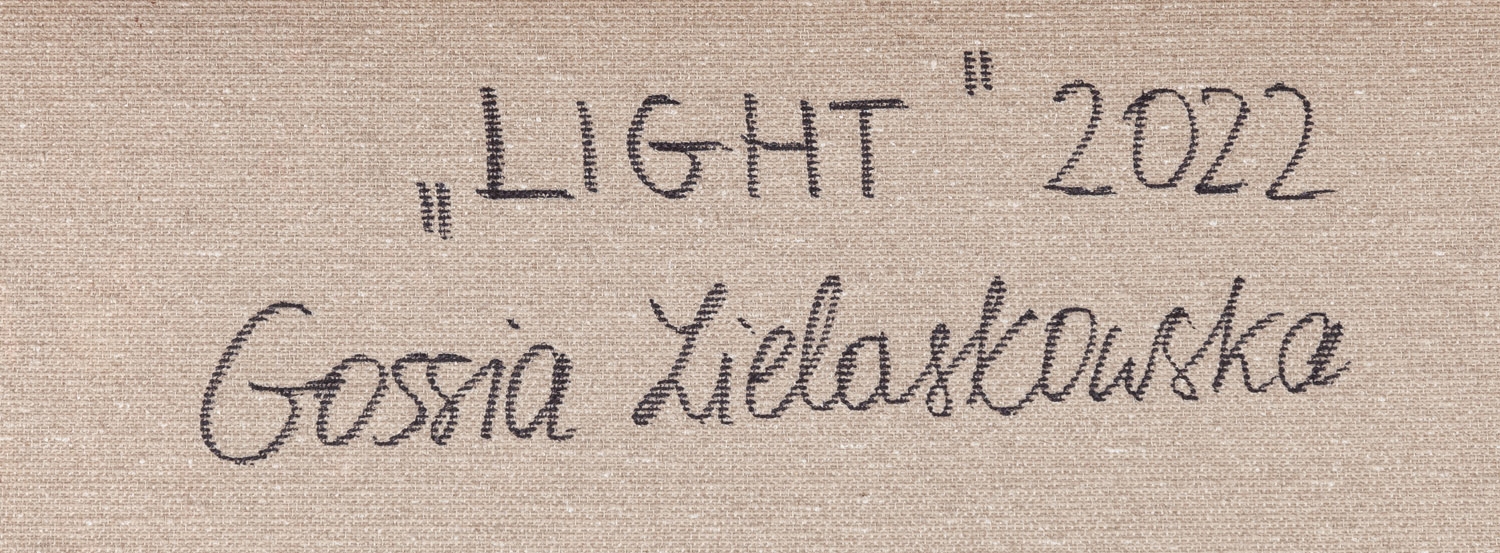 „LIGHT" 2022
Gossia Zielaskowska